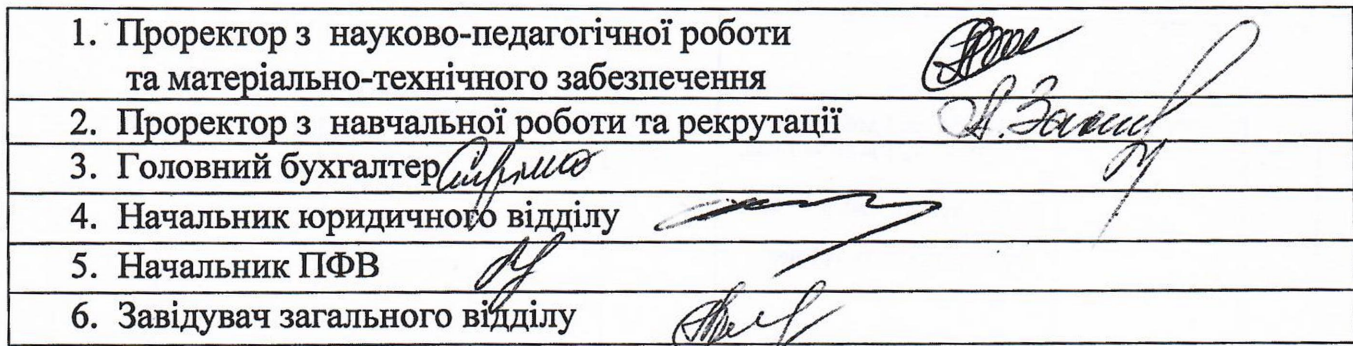 1. Проректор з науково-педагогічної роботи
та матеріально-технічного забезпечення
2. Проректор з навчальної роботи та рекрутації
3. Головний бухгалтер
4. Начальник юридичного відділу
5. Начальник ПФВ
6. Завідувач загального відділу